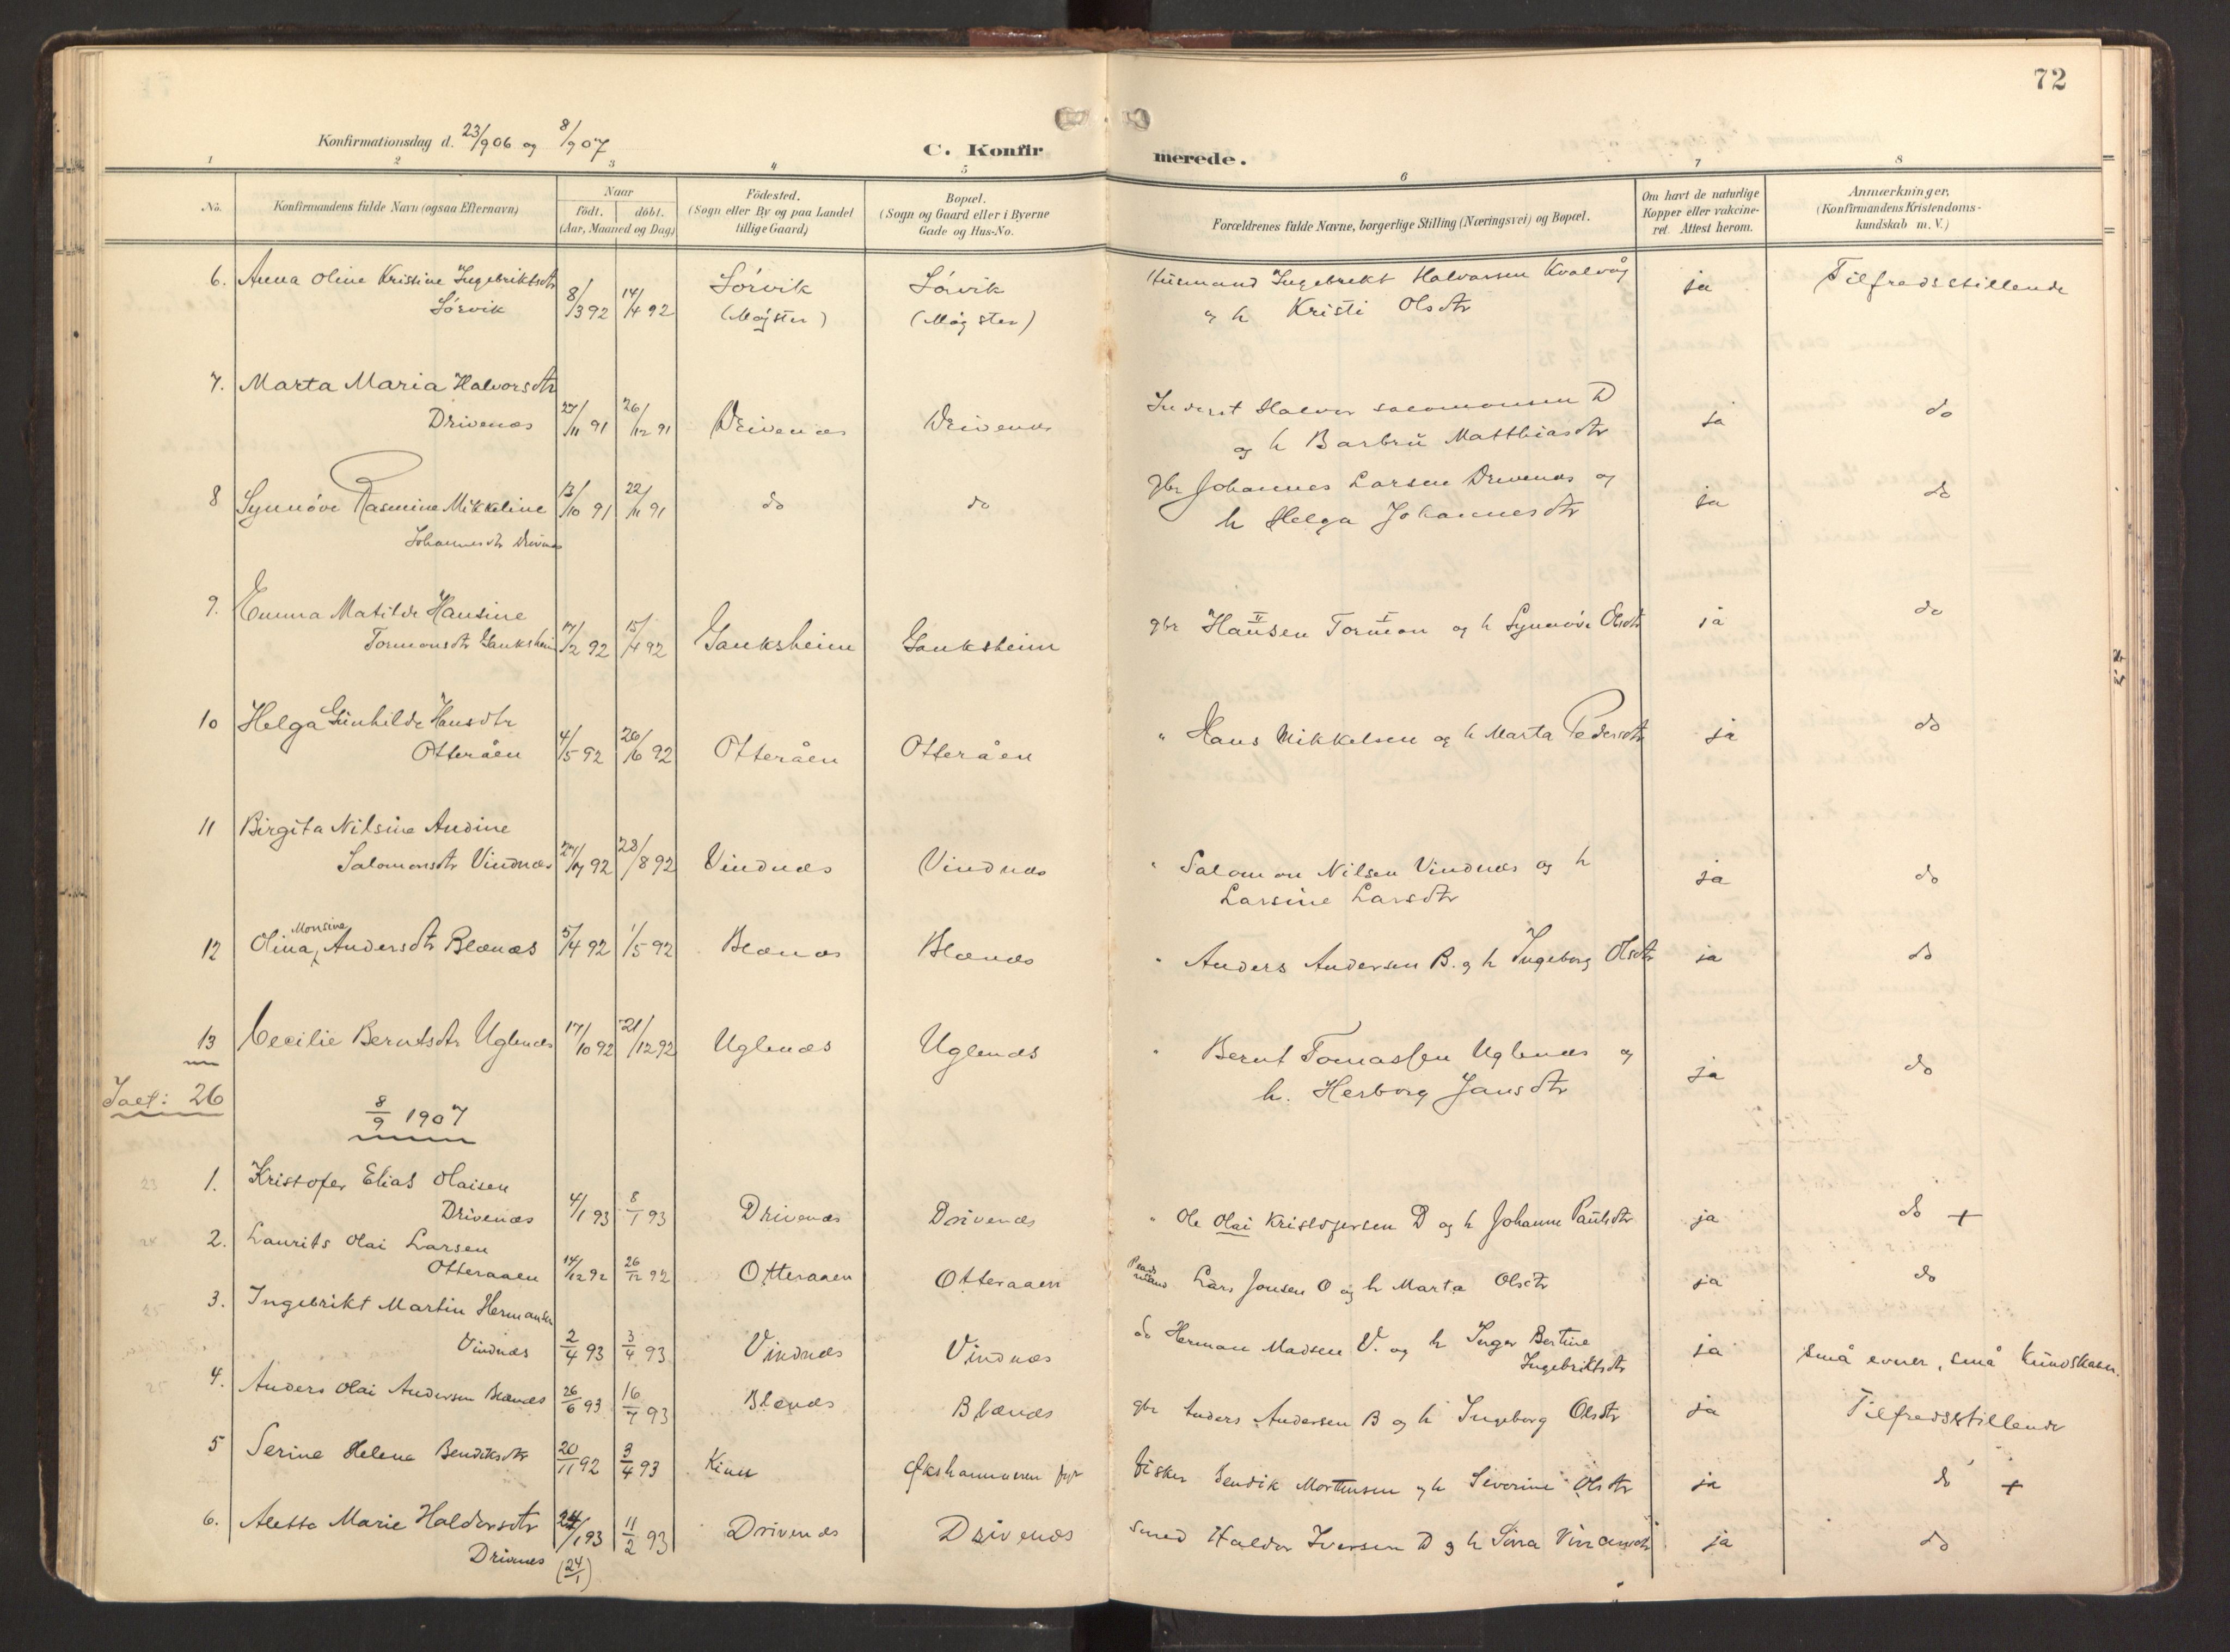 72
Konfirmationsdag d. 23/9 06 og 8/9 07
C. Konfirmerede.
1 2 3 4 5 6 7 8
No.
Konfirmandens fulde Navn (ogsaa Efternavn)
Naar
födt. döbt.
(Aar, Maaned og Dag)
Födested.
(Sogn eller By og paa Landet
tillige Gaard)
Bopæl.
(Sogn og Gaard eller i Byerne
Gade og Hus-No.
Forældrenes fulde Navne, borgerlige Stilling (Næringsvei) og Bopæl.
Om havt de naturlige
Kopper eller vakcine-
ret. Attest herom.
Anmærkninger.
(Konfirmandens Kristendoms-
kundskab m. V.)
6. Anna Oline Kristine Ingebriktsdtr Sörvik Husmand Ingebrekt Halvorsen Kvalvåg ja Tilfredsstillende
Sörvik 8/3 92 14/4 92 (Møgster) (Møgster) og h Kristi Olsdtr
7. Marta Maria Halvorsdtr Inderst Halvor Salomonsen D
Drivenæs 27/11 91 26/12 91 Drivenæs Drivenæs og h Barbru Matthiasdtr ja do
8 Synnöve Rasmine Mikkeline 13/10 91 22/11 91 do do gbr Johannes Larsen Drivenæs og ja do
Johannesdtr Drivnæs h Helga Johannesdtr
9. Emma Matilde Hansine
Tormonsdtr Gauksheim 17/2 92 15/4 92 Gauksheim Gauksheim gbr Hansen II Tormon I og h Synnöve Olsdtr ja do
10 Helga Gunhilde Hansdtr
Otteråen 4/5 92 26/6 92 Otteråen Otteråen " Hans Mikkelsen og h Marta Pedersdtr ja do
11 Birgita Nilsine Andine
Salomonsdtr Vindnæs 27/7 92 28/8 92 Vindnæs Vindnæs " Salomon Nilsen Vindnæs og h ja do
Larsine Larsdtr
12 Olina Monsine Andersdtr Blænæs 5/4 92 1/5 92 Blænæs Blænæs " Anders Andersen B. og h Ingeborg Olsdtr ja do
13 Cecilie Berntsdtr Uglenæs 17/10 92 21/12 92 Uglenæs Uglenæs " Bernt Tomassen Uglenæs og ja do
h. Herborg Jansdtr
Ialt: 26
8/9 1907
1. Kristofer Elias Olaisen
Drivenæs 4/1 93 8/1 93 Drivenæs Drivenæs " Ole Olai Kristofersen D og h Johanne Paulsdtr ja do +
2. Laurits Olai Larsen
Otteraaen 14/12 92 26/12 92 Otteraaen Otteraaen Lars Jonsen O og h Marta Olsdtr ja do
3. Ingebrikt Martin Hermansen
Vindnæs 2/4 93 3/4 93 Vindnæs Vindnæs do Herman Madsen V. og h Inger Bertine ja små evner, små kundskaber.
Ingebriktsdtr
4. Anders Olai Andersen Blænæs 26/6 93 16/7 93 Blænæs Blænæs gbr Anders Andersen B og h Ingeborg Olsdtr ja Tilfredsstillende
5 Serine Helena Bendiksdtr 20/11 92 3/4 93 Kinn fyr fisker Bendik Mortensen og h Severine Olsdtr ja do +
6. Aletta Marie Haldorsdtr 24/1 93 11/2 93 Drivenæs Drivenæs Smed Haldor Iversen D og h ja do
Drivnæs (24/1)